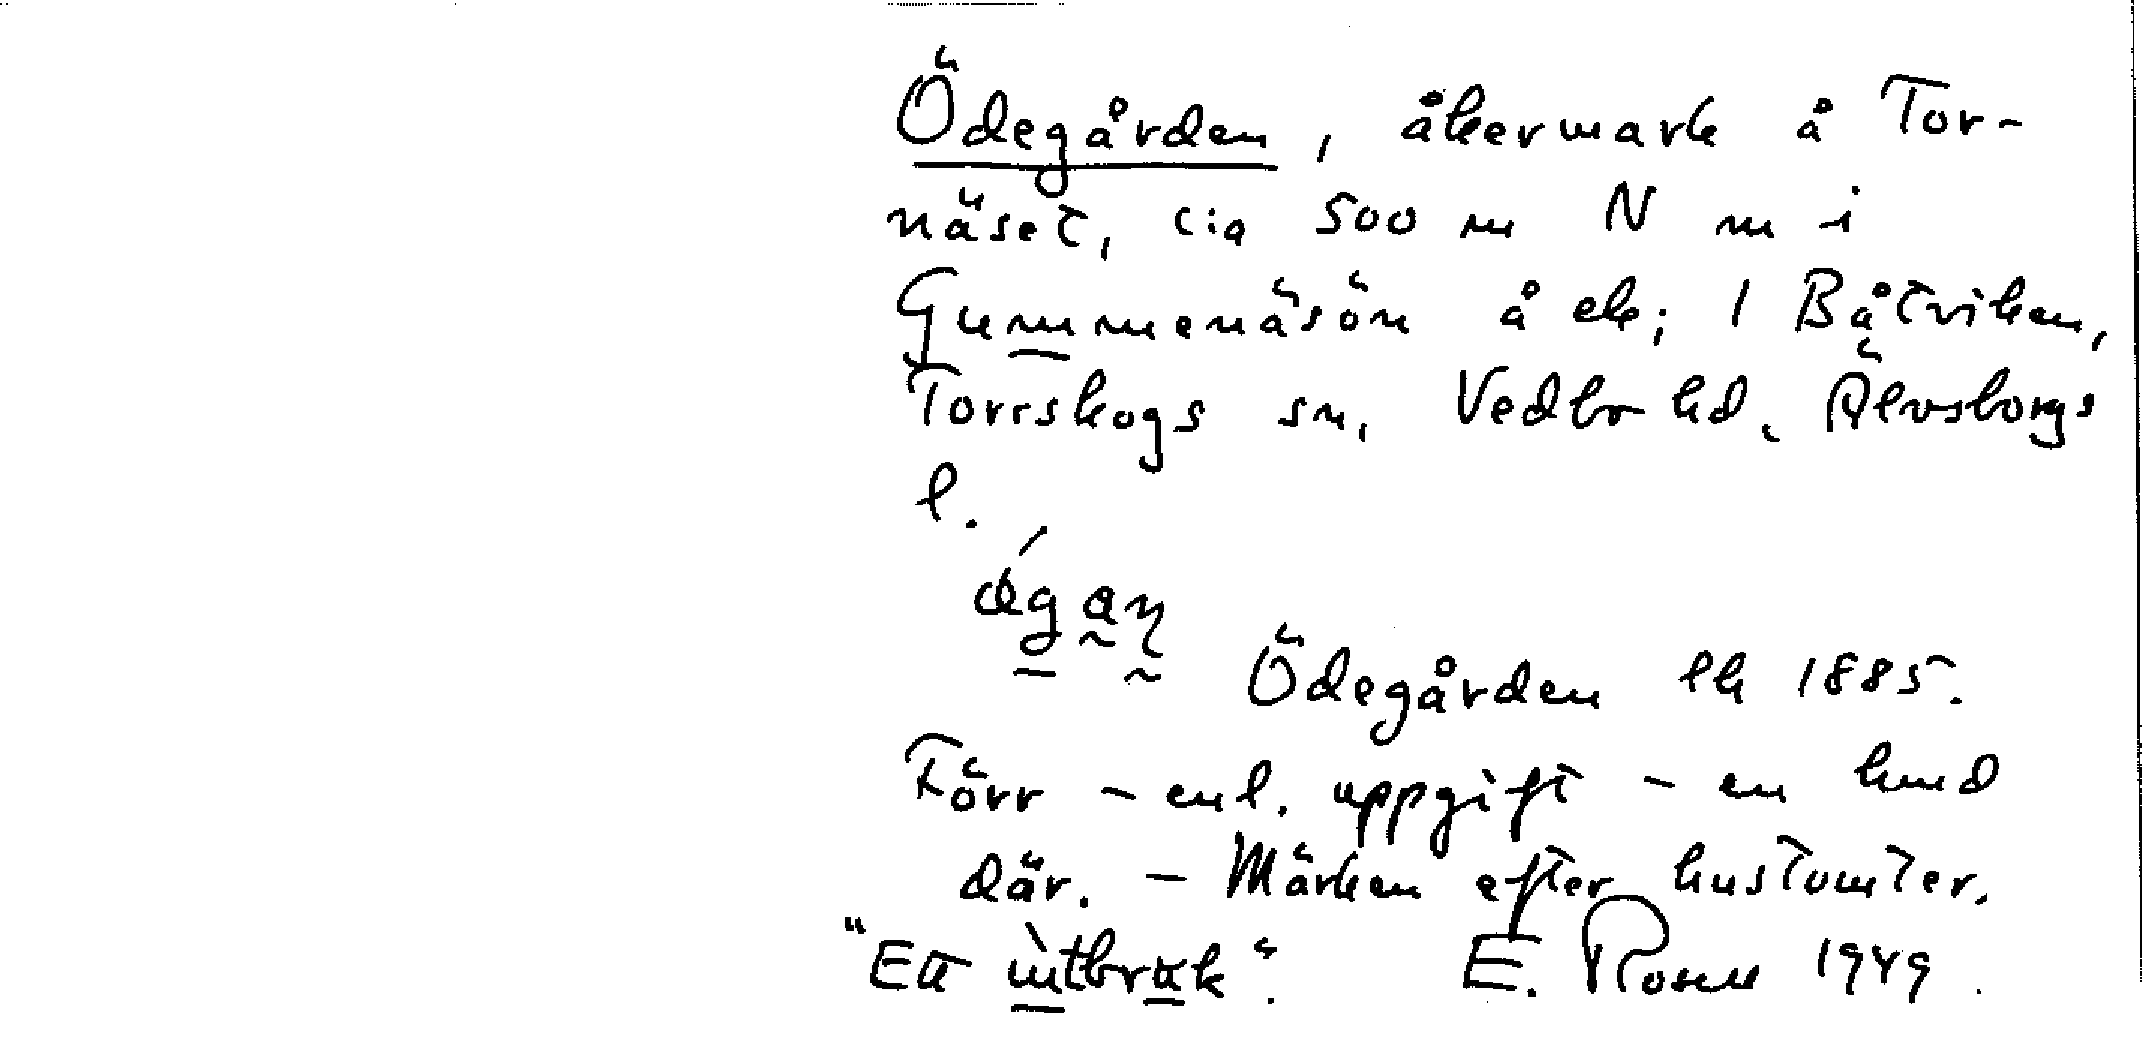 Ödegården, åkermark å Tor-
näset, c:a 500 m N m i
Gummenäsön å ek; 1 Båtviken,
Torrskogs sn, Vedbo hd, Älvsborgs
l.
Ödegården lk 1885.
Förr - enl. uppgift - en hund
där. - Märken efter hustomter.
"Ett utbruk". E. Rosell 1949.